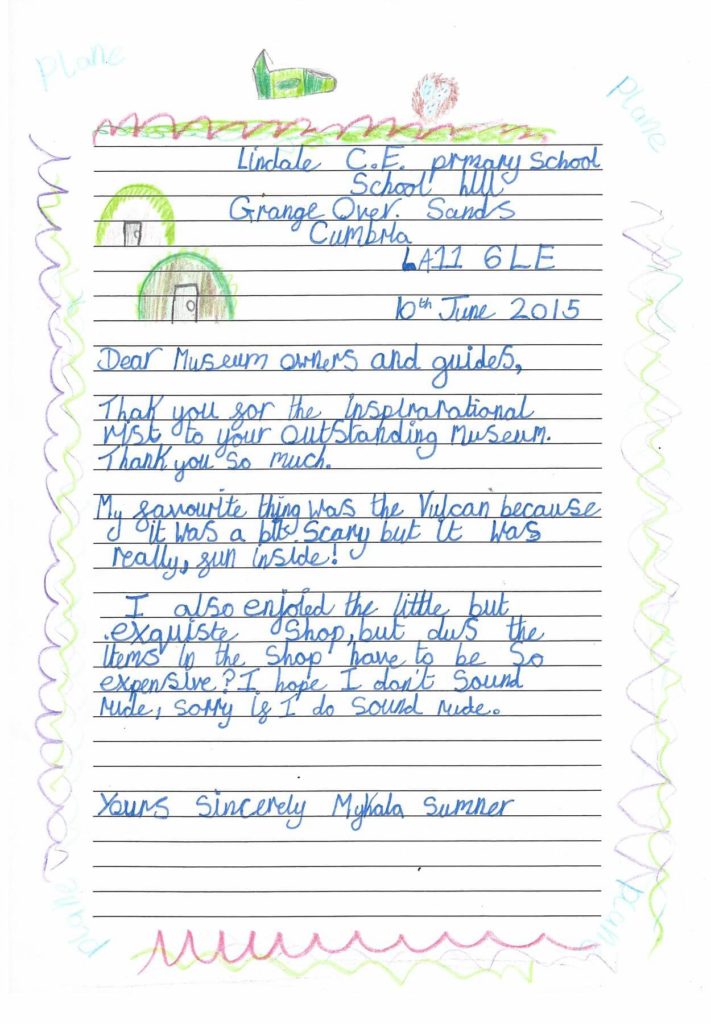 plane
plane
Lindale C.E. prmary School
School hill
Grange Over. Sands
Cumbria
LA11 6LE
10th June 2015
Dear Museum owners and guides,
Thak you for the inspirarational
visit to your Outstanding Museum.
Thank you so much.
My favourite thing was the Vulcan because
it was a bit scary but it was
really, fun inside!
I also enjoied the little but
exquiste Shop, but dus the
items in the shop have to be so
expensive? I hope I don't Sound
rude, sorry if I do sound rude.
Yours Sincerely Mykala Sumner
plane
plane